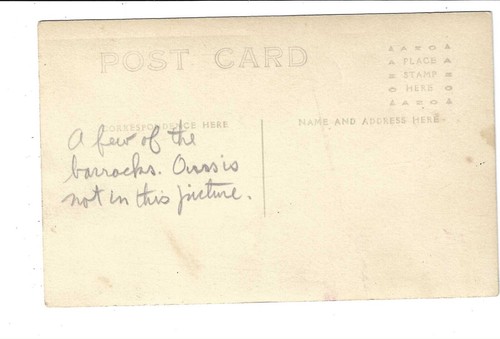 POST CARD
▲ A Z O ▲
PLACE
STAMP
HERE
▲ A Z O ▲
CORRESPONDENCE HERE
NAME AND ADDRESS HERE
A few of the
barracks. Ours is
not in this picture.